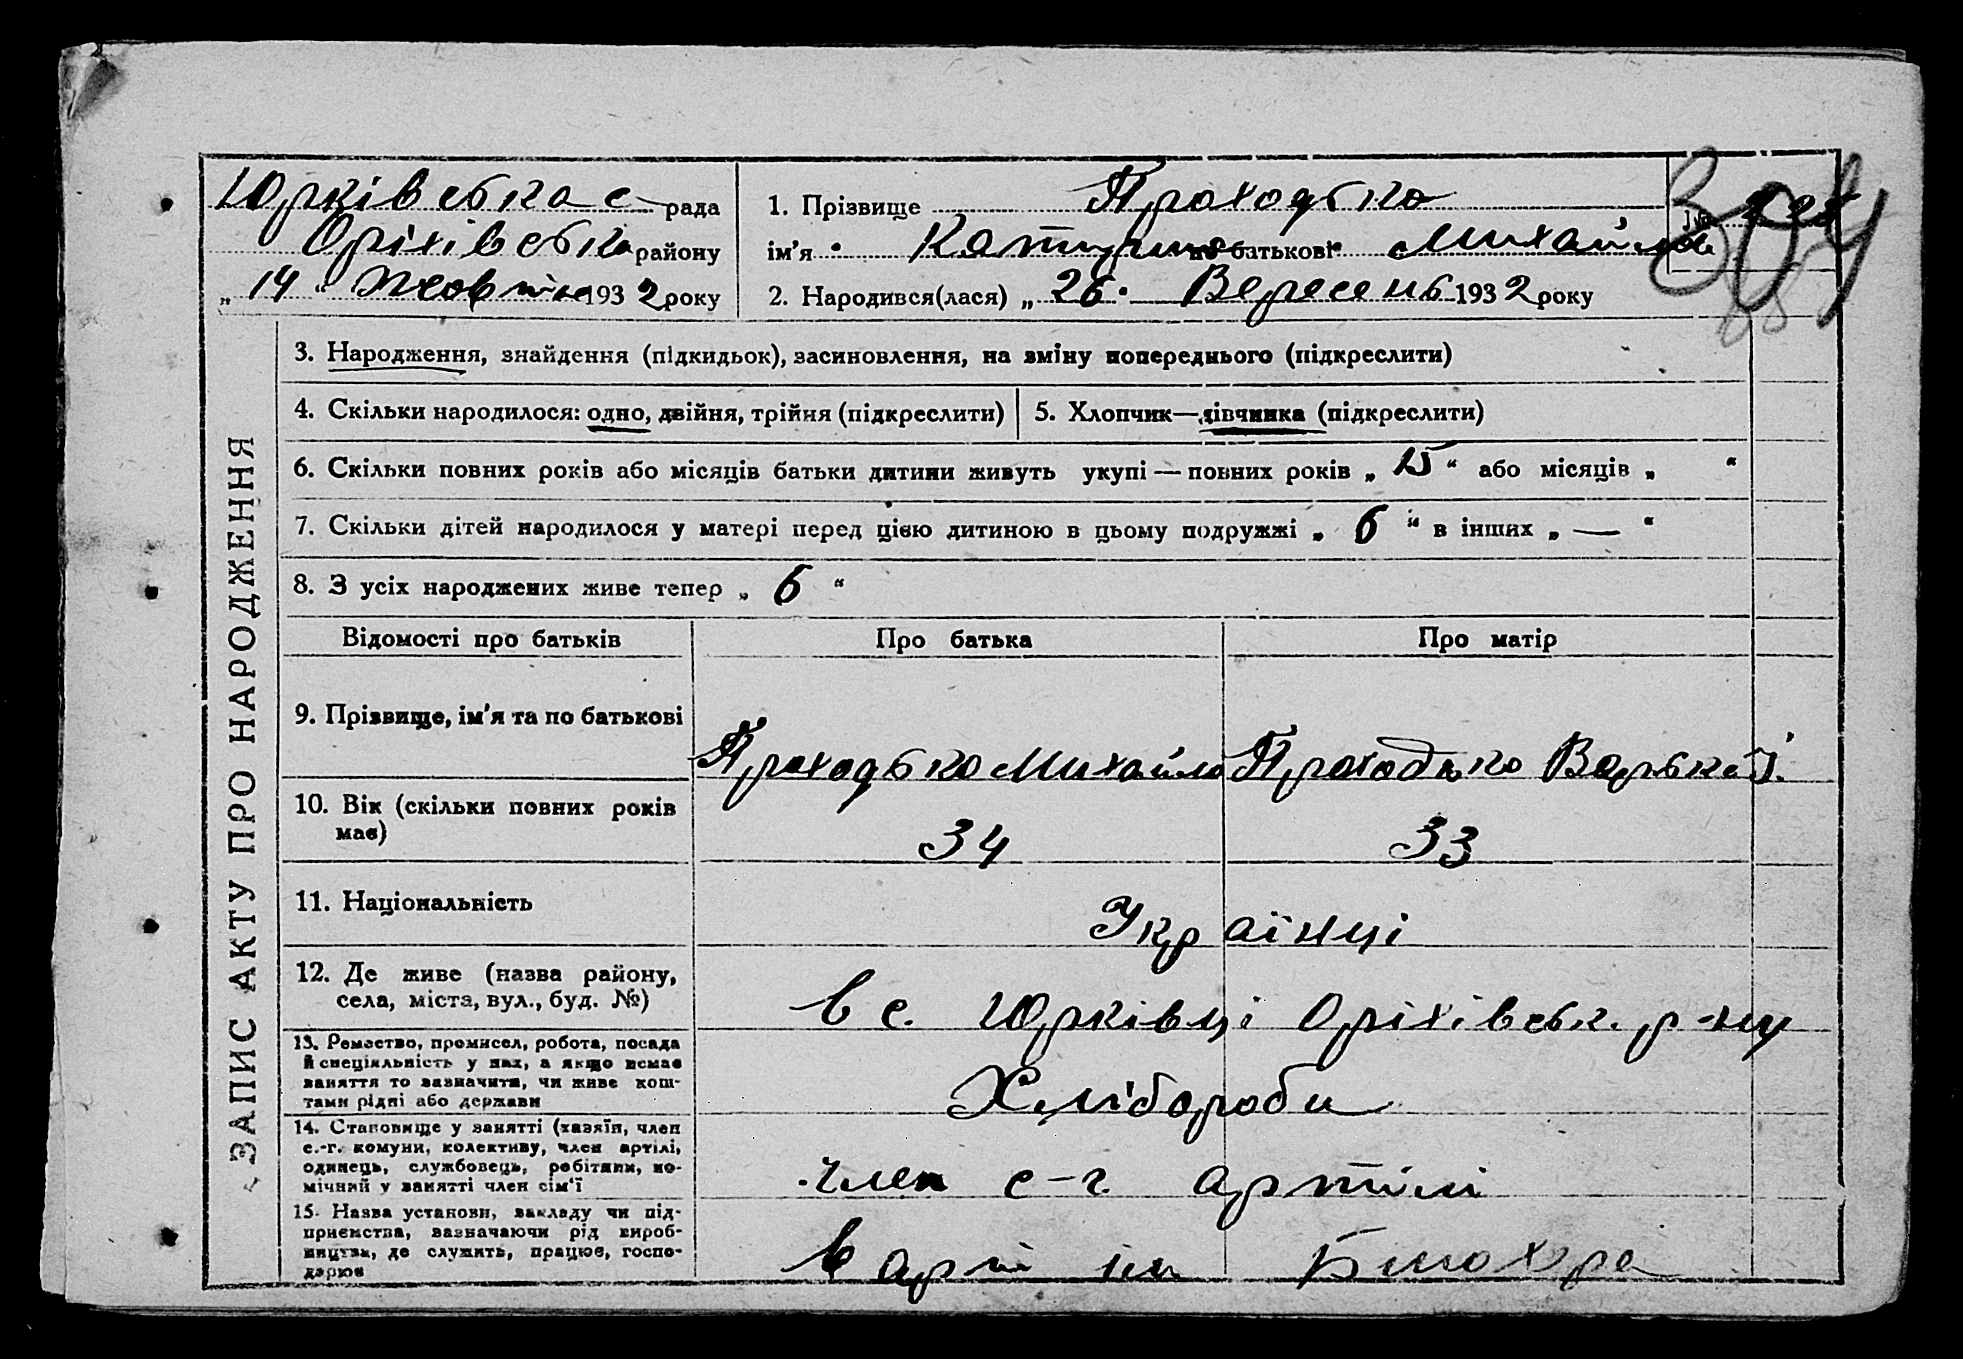 Юрківська с рада
Оріхівська району
„ 14 " Жовтня 1932 року
1. Прізвище Проходько
ім'я Катерина по батькові Михайлов
2. Народився(лася) „ 26. Вересень 1932 року
№ 304
ЗАПИС АКТУ ПРО НАРОДЖЕННЯ
3. Народження, знайдення (підкидьок), засиновлення, на зміну попереднього (підкреслити)
4. Скільки народилося: одно, двійня, трійня (підкреслити) 5. Хлопчик—дівчинка (підкреслити)
6. Скільки повних років або місяців батьки дитини живуть укупі — повних років „ 15 “ або місяців „ “
7. Скільки дітей народилося у матері перед цією дитиною в цьому подружжі „ 6 “ в інших „ — “
8. З усіх народжених живе тепер „ 6 “
Відомості про батьків Про батька Про матір
9. Прізвище, ім'я та по батькові Проходько Михайло Проходько Варька
10. Вік (скільки повних років
має) 34 33
11. Національність Українці
12. Де живе (назва району,
села, міста, вул., буд. №) в с. Юрківці Оріхівськ. р-ну
13. Ремаство, промисел, робота, посада
й спеціяльність у них, а якщо немає
заняття то зазначити, чи живе кош-
тами рідні або держави Хлібороби
14. Становище у занятті (хазяїн, член
с.-г. комуни, колективу, член артілі,
одинець, службовець, робітник, по-
мічний у занятті член сім'ї член с-г. артілі
15. Назва установи, закладу чи під-
приємства, вазначаючи рід вироб-
ництва, де служить, працює, госпо-
дарює в арті ім Блюхера